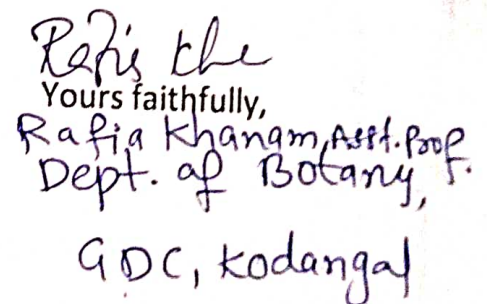 Rafia Kha
Yours faithfully,
Rafia Khanam, Asst. Prof.
Dept. of Botany,
GDC, Kodangal